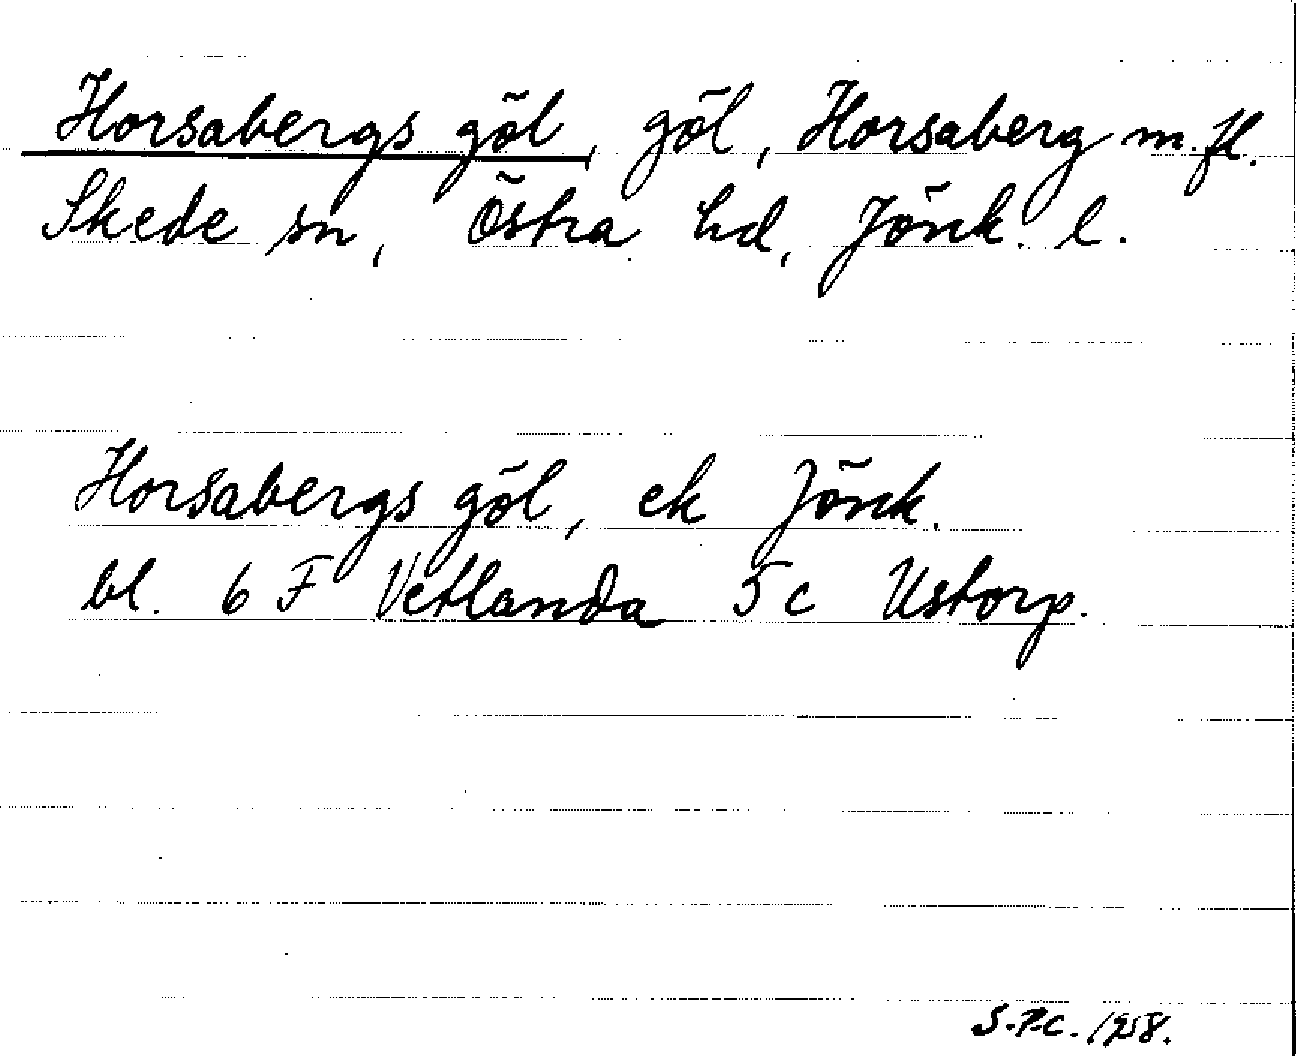 Horsabergs göl, göl, Horsaberg m.fl.
Skede sn, Östra hd, Jönk. l.
Horsabergs göl, ek Jönk.
bl. 6 F Vetlanda 5 c Ustorp.
S.P.C. 1958.